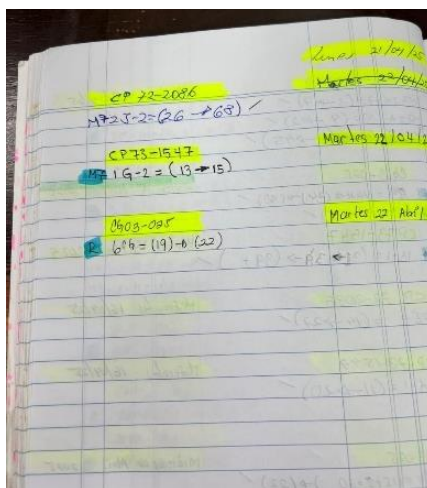 Lunes 21/04/25
Martes 22/04/25
CP 72-2086
M7 2J-2=(26 → 68) ✓
Martes 22/04/2
CP73-1547
M7 1G-2=(13 → 15)
Martes 22 Abril
CG03-025
R 6ch=(19)-D (22)